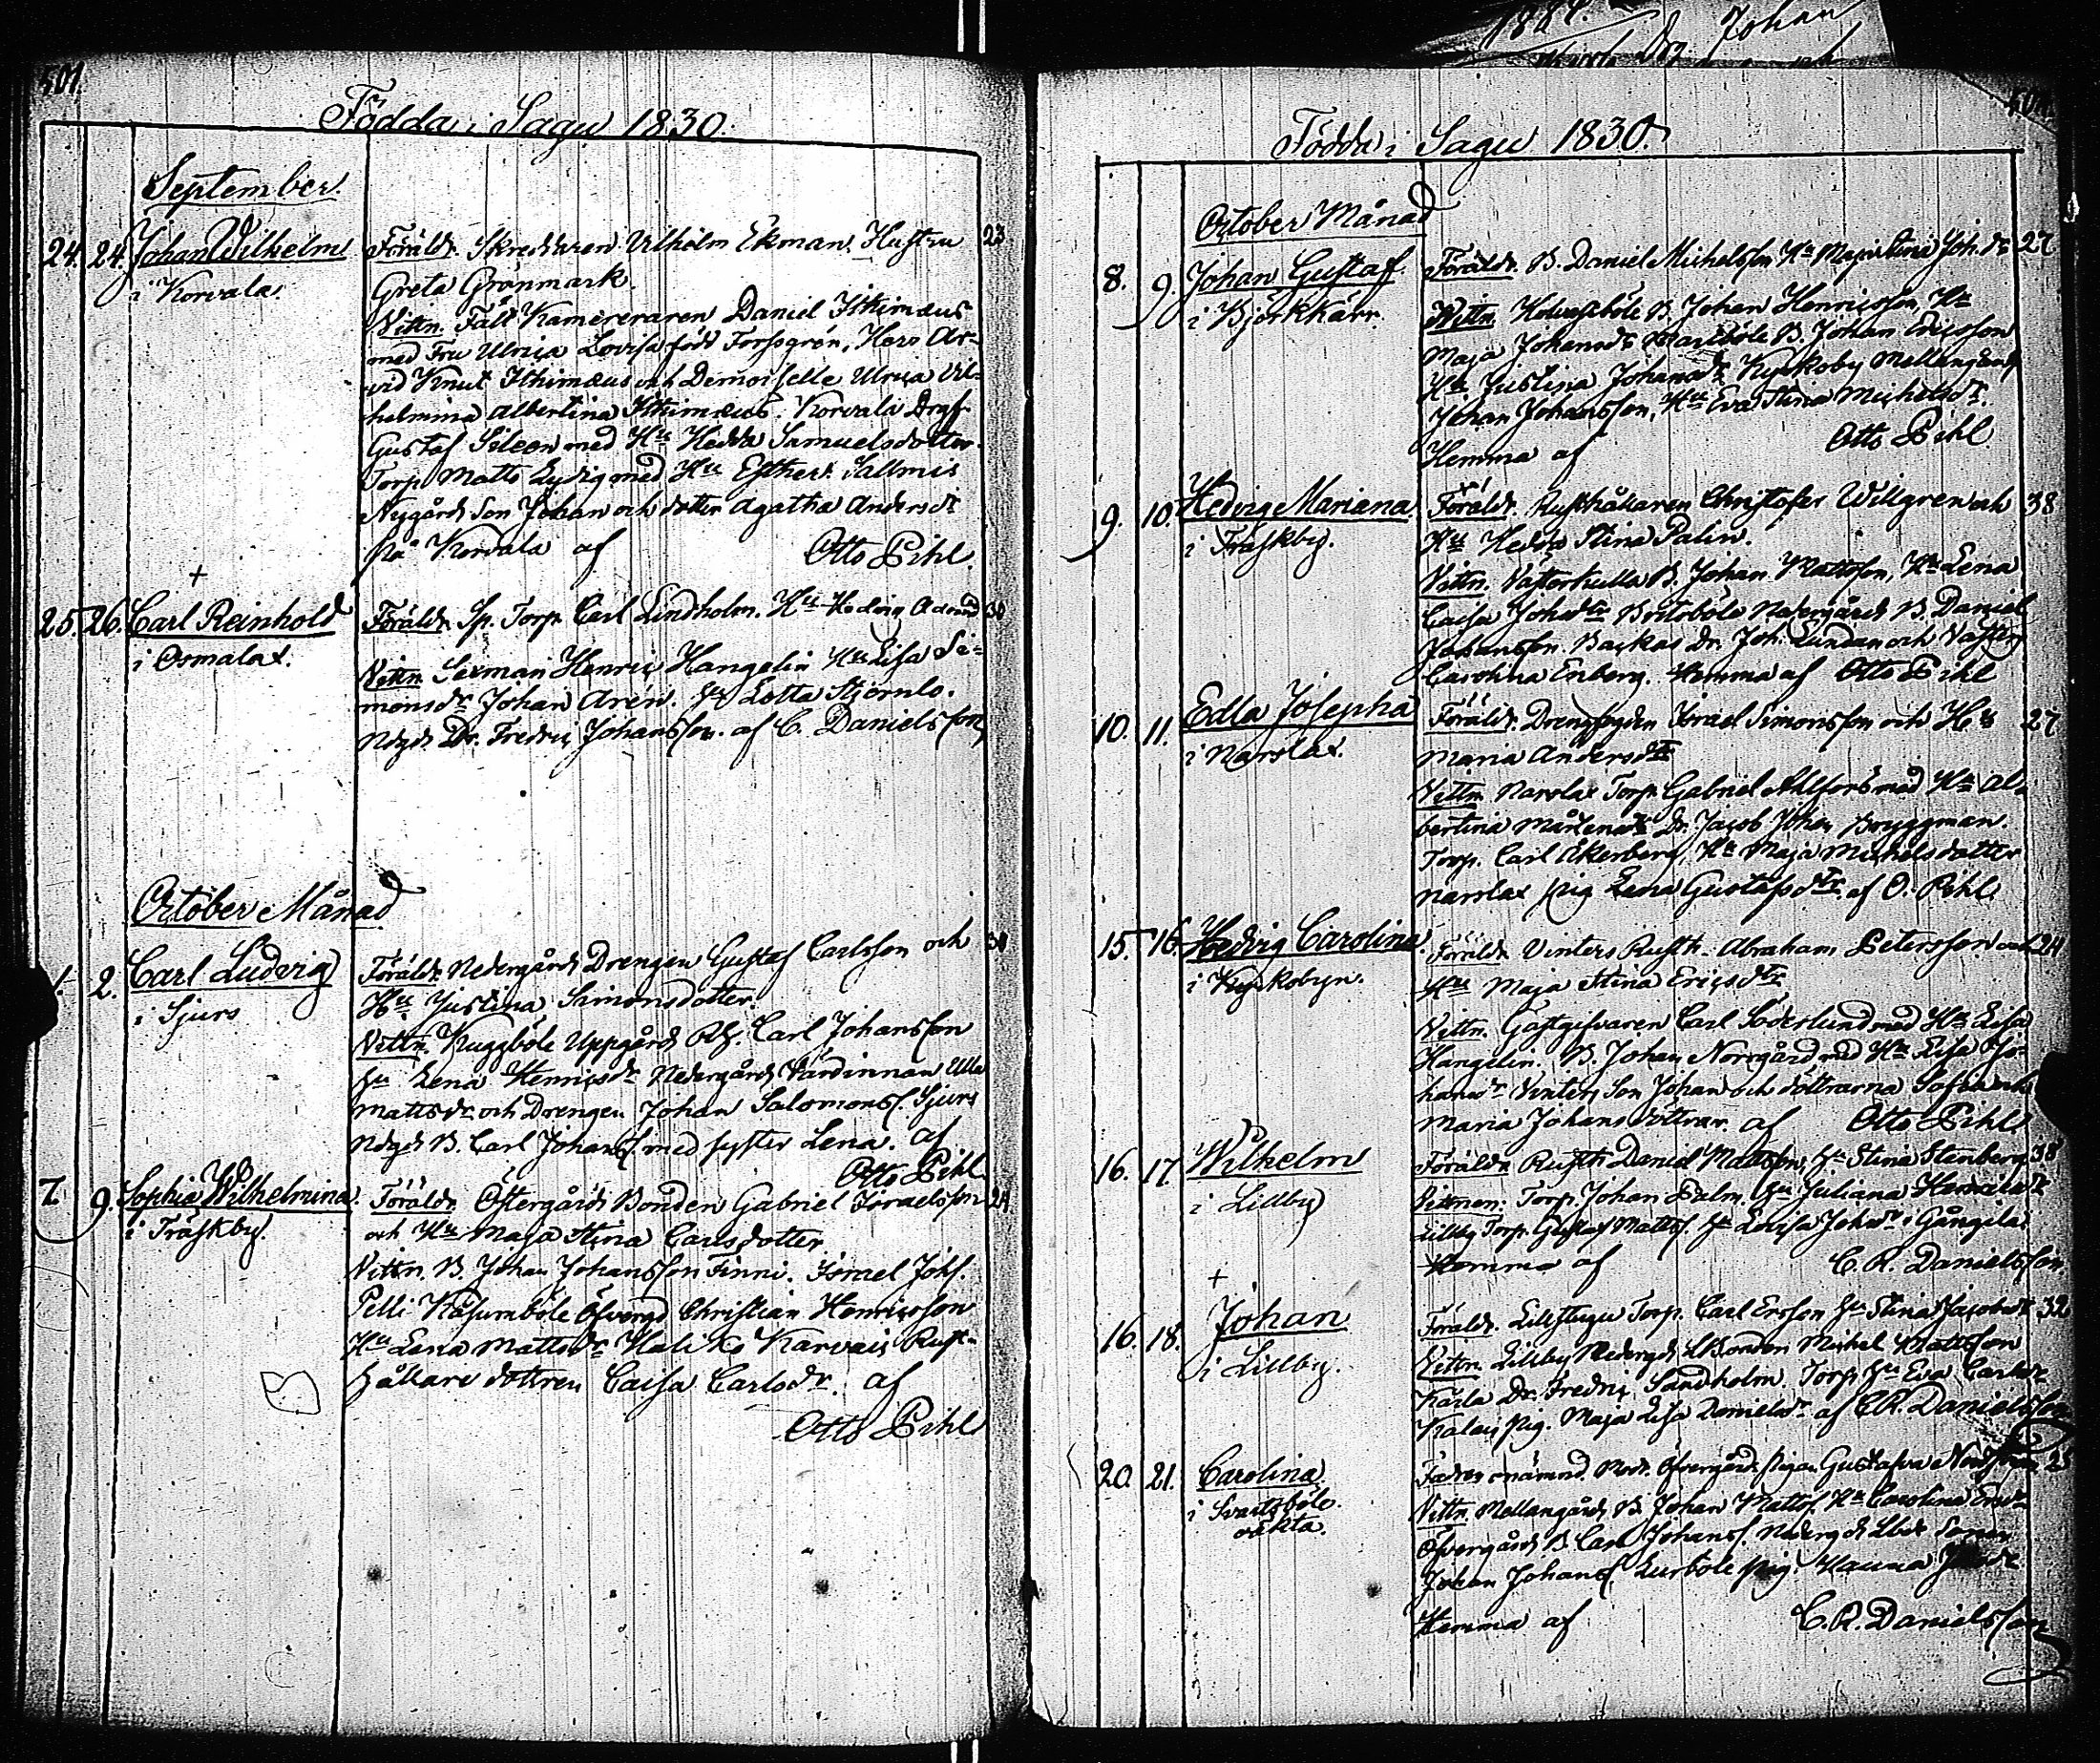 501.
Födda i Sagu 1830.
September.
24. 24. Johan Wilhelm
i Korvala.
Föräldr. Skreddaren Vilhelm Ekman. Hustru 23
Greta Grönmark.
Vittn. Fält Kamereraren Daniel Ithimæus
med Fru Ulrica Lovisa född Forssgrén, Herr Ar-
vid Knut Ithimæus och Demoiselle Ulrica Vil-
helmina Albertina Ithimæus. Korvala
Gustaf Sileen med Hu Hedda Samuelsdotter.
Torp. Matts med Hu Esther. Sallmis
Nygårds Son Johan och dotter Agatha Andersdr
på Korvala af Otto Pihl.
+
25. 26. Carl Reinhold
i Osmalax.
Föräldr. Sp. Torp. Carl Lindholm. Hu Hedvig 30
Vittn. Sexman Henric Hangelin Hu Lisa Si-
monsdr Johan Arén. Hu Lotta Stjernlo.
Ndgds Dr. Fredric Johansson. af C. Danielsson
October Månad
1. 2. Carl Ludvig
i Sjurs
Föräldr. Nedergårds Drengen Gustaf Carlsson och 30
Hu Justina Simonsdotter.
Vittn. Kuggböle Uppgårds Carl Johansson
Hu Lena Henricsdr Nedergårds Värdinnan Ulla
Mattsdr och Drengen Johan Salomonss. Sjurs
Ndgds B. Carl Johanss. med syster Lena. af
Otto Pihl
7. 9. Sophia Wilhelmina.
i Träskby.
Föräldr. Östergårds Bonden Gabriel Israelsson 24
och Hu Maja Stina Carlsdotter
Vittn. B. Johan Johansson Finni. Israel Johs.
Pelli Kåsumböle Öfvergd Christian Henricsson
Hu Lena Mattsdr Haliko Karvais Rust-
hållare dottren Caisa Carlsdr. af
Otto Pihl
Födda i Sagu 1830.
October Månad
8. 9. Johan Gustaf
i Björkkärr.
Föräldr. B. Daniel Michelsson Hu Maja Stina Joh.dr 27
Wittn. B. Johan Henricsson, Hu
Maja Johansdr B. Johan Ericsson
Hu Justina Johansdr Kyrkoby Mellangårds
Johan Johansson, Hu Eva Stina Michelsdr.
Hemma af Otto Pihl
9. 10. Hedvig Mariana.
i Träskby.
Föräldr. Rusthållaren Christofer Willgren och 38
Hu Hedda Stina Palin.
Vittn. Västerkulla B. Johan Mattsson, Hu Lena
Caisa Johsdr Nedergårds B. Daniel
Johansson. Backas Dr. Joh. Lundan och
Carolina Enberg. Hemma af Otto Pihl
10. 11. Edla Josepha
i Narslax.
Föräldr. Drengfogden Israel Simonsson och Hu 27
Maria Andersdtr
Vittn. Narslax Torp. Gabriel Ahlfors med Hu Al-
bertina Mårtensdr Dr. Jacob Johan Bryggman.
Torp. Carl Ekerberg, Hu Maja Michelsdotter
Narslax pig. Lena Gustafsdtr. af O. Pihl
15. 16. Hedvig Carolina.
i Kyrkobyn.
Föräldr. Vinters Rusth. Abraham Petersson och 24
Hu Maja Stina Ericsdtr
Vittn. Gästgifvaren Carl Söderlund med Hu Lisa
Hangelin. B. Johan Norrgård med Hu Lisa Jo-
hansdr Vinters Son Johan och döttrarna Sofia och
Maria Johans döttrar. af Otto Pihl
16. 17. Wilhelm
i Lillby
Föräldr. Rusth. Daniel Mattsson, Hu Stina Stenberg 38
Vittnen. Torp. Johan Palm. Hu Juliana Henricsdr
Lillby Torp. Gustaf Mattss. Hu Lovisa Johsdr i Gångila
Hemma af C. R. Danielsson
+
16. 18. Johan
i Lillby.
Föräldr. Lillstugu Torp. Carl Ersson Hu Stina Jacobsdr 32
Vittn. Lillby Nedergds Bonden Michel Mattsson
Karla Dr. Fredric Sandholm. Torp. Hu Eva Carlsdr
pig. Maja Lisa Danielsdr. af C. R. Danielsson
20. 21. Carolina.
i Svartböle.
oäkta.
Fadren onämnd. Mod. Öfvergårds pigan Gustafva
Vittn. Mellangårds B. Johan Mattss. Hu Carolina Ersdr
Öfvergårds B. Carl Johanss. Nedergds
Johan Johanss. pig. Hanna
Hemma af C. R. Danielsson